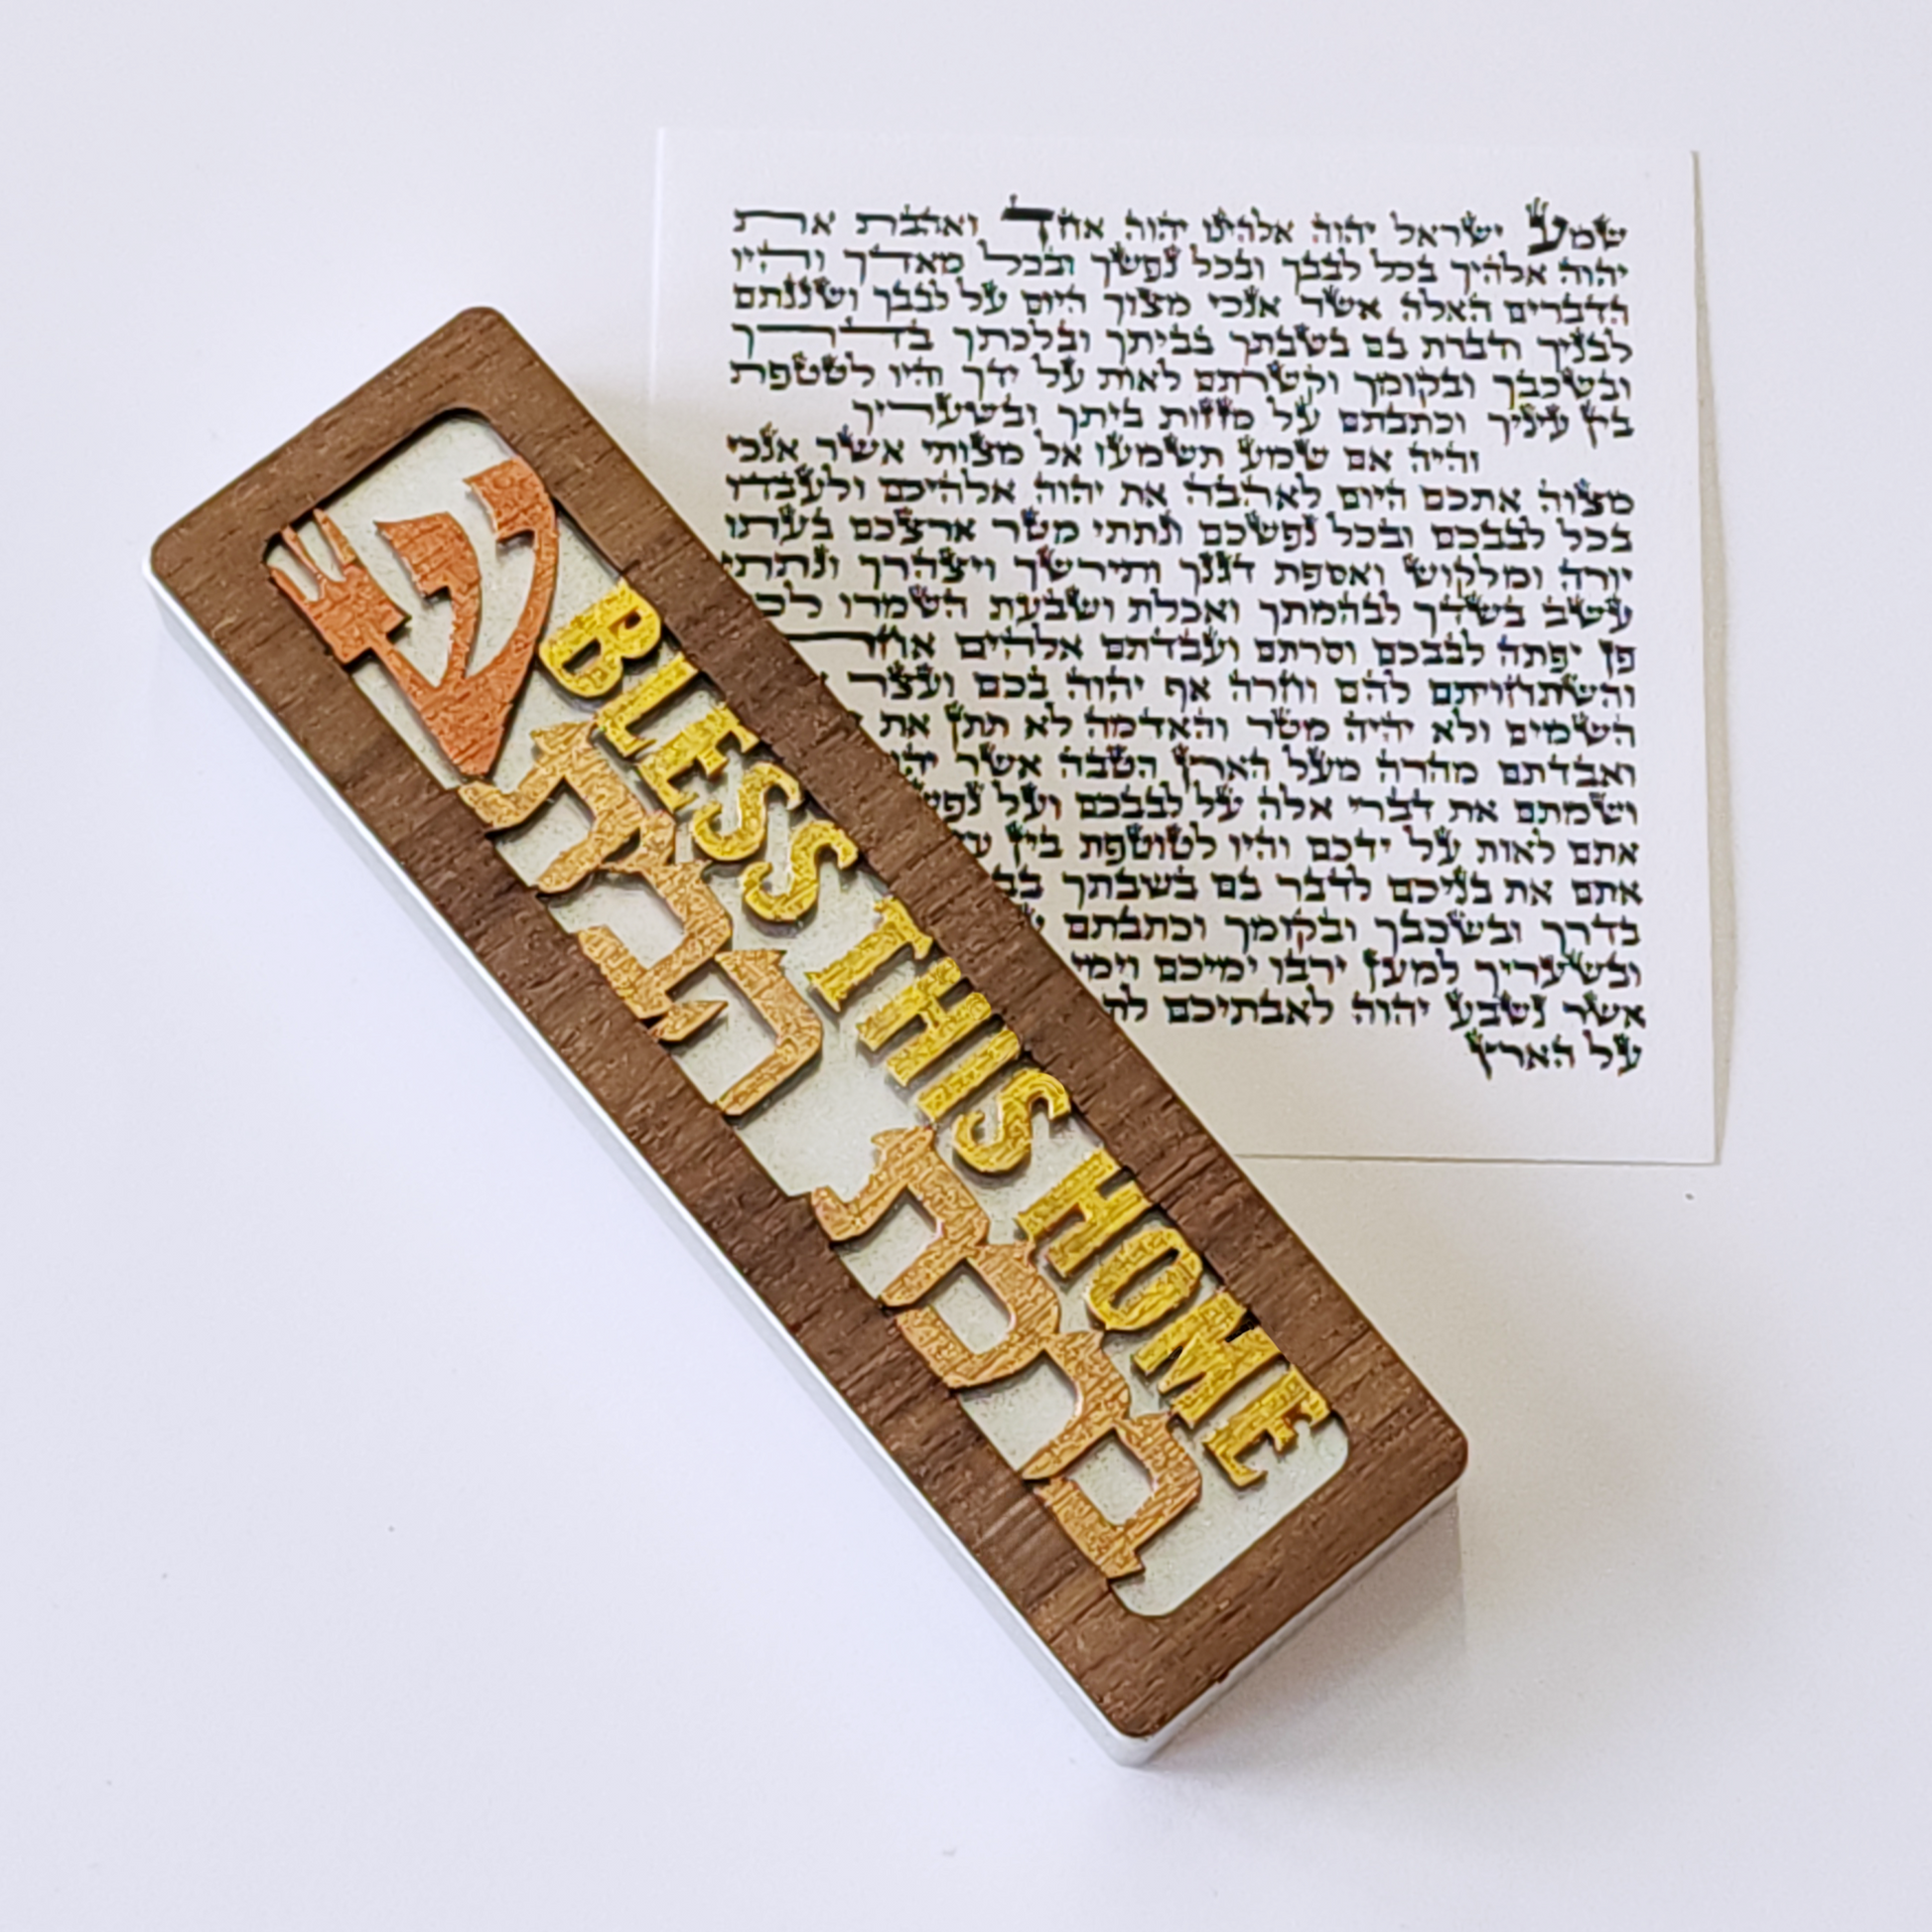 ש
BLESS THIS HOME
ברכת הבית
שמע ישראל יהוה אלהינו יהוה אחד ואהבת את
יהוה אלהיך בכל לבבך ובכל נפשך ובכל מאדך והיו
הדברים האלה אשר אנכי מצוך היום על לבבך ושננתם
לבניך ודברת בם בשבתך בביתך ובלכתך בדרך
ובשכבך ובקומך וקשרתם לאות על ידך והיו לטטפת
בין עיניך וכתבתם על מזזות ביתך ובשעריך
והיה אם שמע תשמעו אל מצותי אשר אנכי
מצוה אתכם היום לאהבה את יהוה אלהיכם ולעבדו
בכל לבבכם ובכל נפשכם ונתתי מטר ארצכם בעתו
יורה ומלקוש ואספת דגנך ותירשך ויצהרך ונתתי
עשב בשדך לבהמתך ואכלת ושבעת השמרו
פן יפתה לבבכם וסרתם ועבדתם אלהים
והשתחויתם להם וחרה אף יהוה בכם ועצר
השמים ולא יהיה מטר והאדמה לא תתן את
ואבדתם מהרה מעל הארץ הטבה אשר
ושמתם את דברי אלה על לבבכם ועל
אתם לאות על ידכם והיו לטוטפת בין
אתם את בניכם לדבר בם בשבתך
בדרך ובשכבך ובקומך וכתבתם
ובשעריך למען ירבו ימיכם וימי
אשר נשבע יהוה לאבתיכם
על הארץ